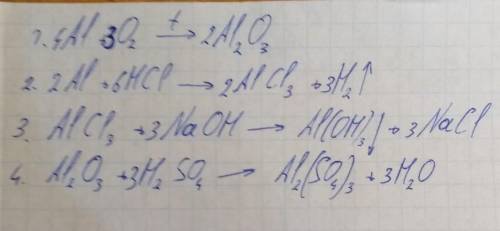 1. 4Al + 3O₂ →ᵗ 2Al₂O₃
2. 2Al + 6HCl → 2AlCl₃ + 3H₂↑
3. AlCl₃ + 3NaOH → Al(OH)₃↓ + 3NaCl
4. Al₂O₃ + 3H₂SO₄ → Al₂(SO₄)₃ + 3H₂O